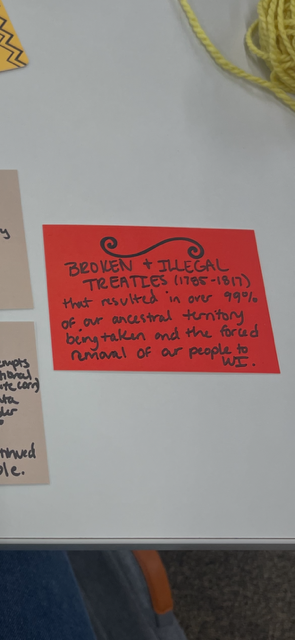 BROKEN + ILLEGAL
TREATIES (1785-1817)
that resulted in over 99%
of our ancestral territory
being taken and the forced
removal of our people to
WI.
y
empts
tional
ute corn)
nta
der
tinued
ple.